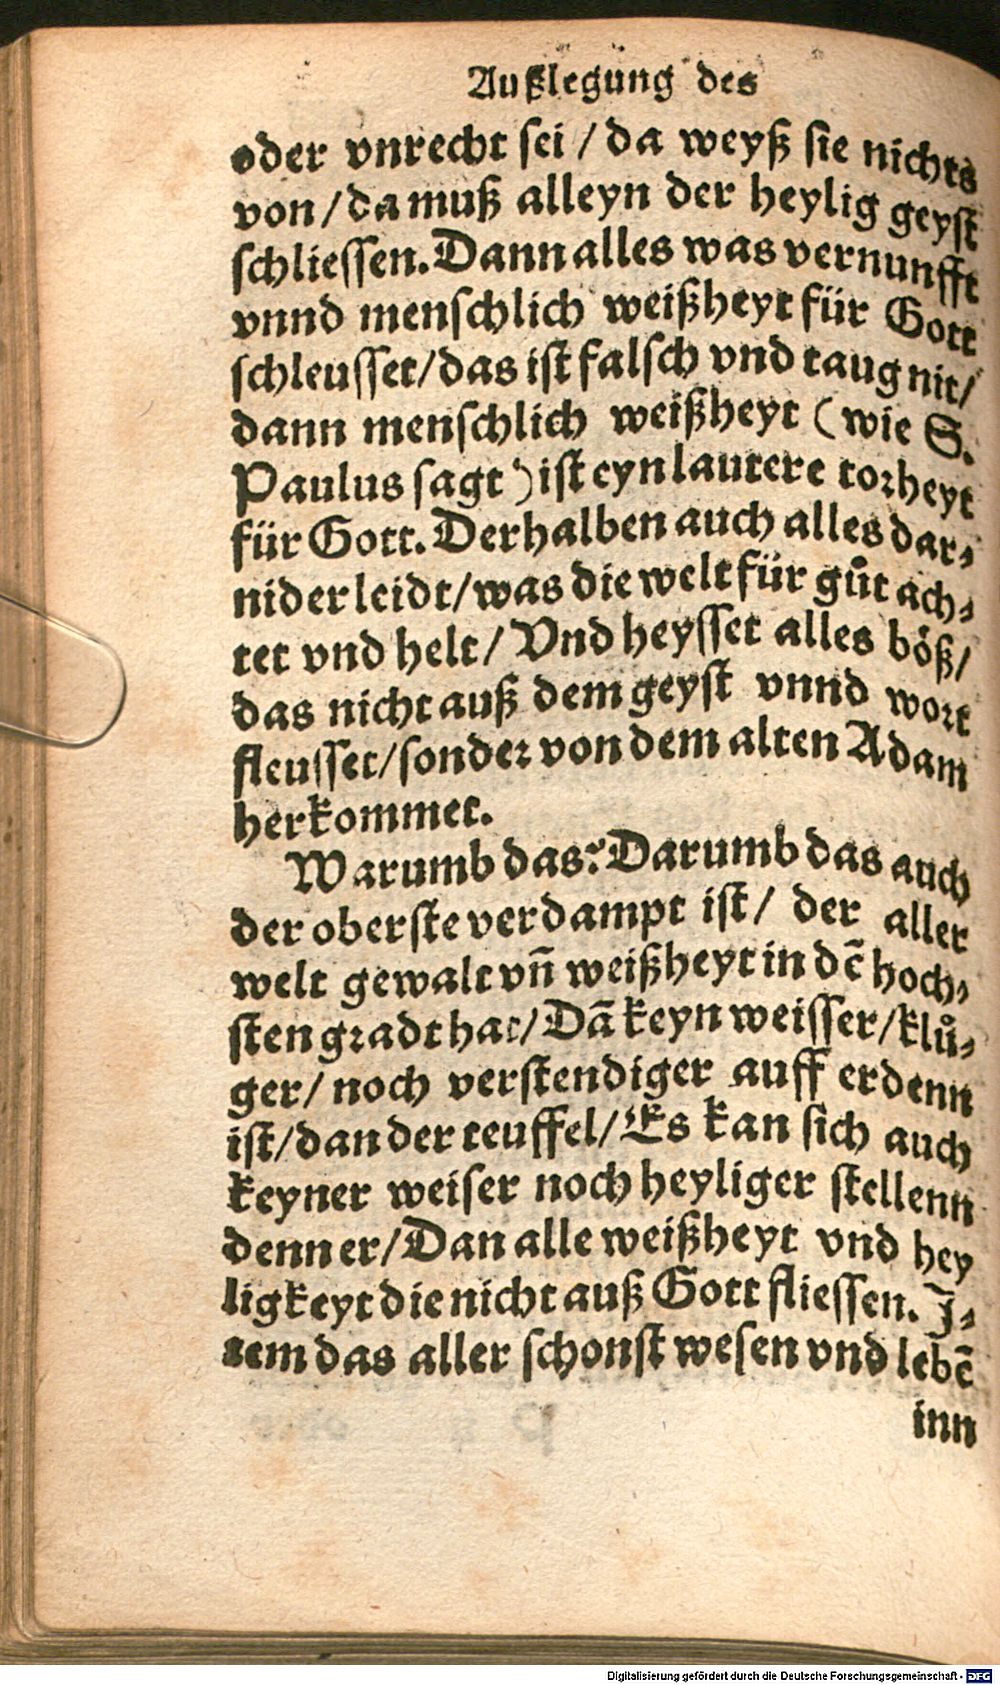 Außlegung des
oder vnrecht sei / da weyß sie nichts
von / da muß alleyn der heylig geyst
schliessen. Dann alles was vernunfft
vnnd menschlich weißheyt für Gott
schleusset / das ist falsch vnd taug nit /
dann menschlich weißheyt ( wie S.
Paulus sagt ) ist eyn lautere torheyt
für Gott. Derhalben auch alles dar⸗
nider leidt / was die welt für gůt ach⸗
tet vnd helt / Vnd heysset alles böß /
das nicht auß dem geyst vnnd wort
fleusset / sonder von dem alten Adam
herkommet.
Warumb das? Darumb das auch
der oberste verdampt ist / der aller
welt gewalt vn̄ weißheyt in dē hoch⸗
sten gradt hat / Dā keyn weisser / klů⸗
ger / noch verstendiger auff erdenn
ist / dan der teuffel / Es kan sich auch
keyner weiser noch heyliger stellenn
denn er / Dan alle weißheyt vnd hey
ligkeyt die nicht auß Gott fliessen. J⸗
tem das aller schonst wesen vnd lebē
inn
Digitalisierung gefördert durch die Deutsche Forschungsgemeinschaft - DFG